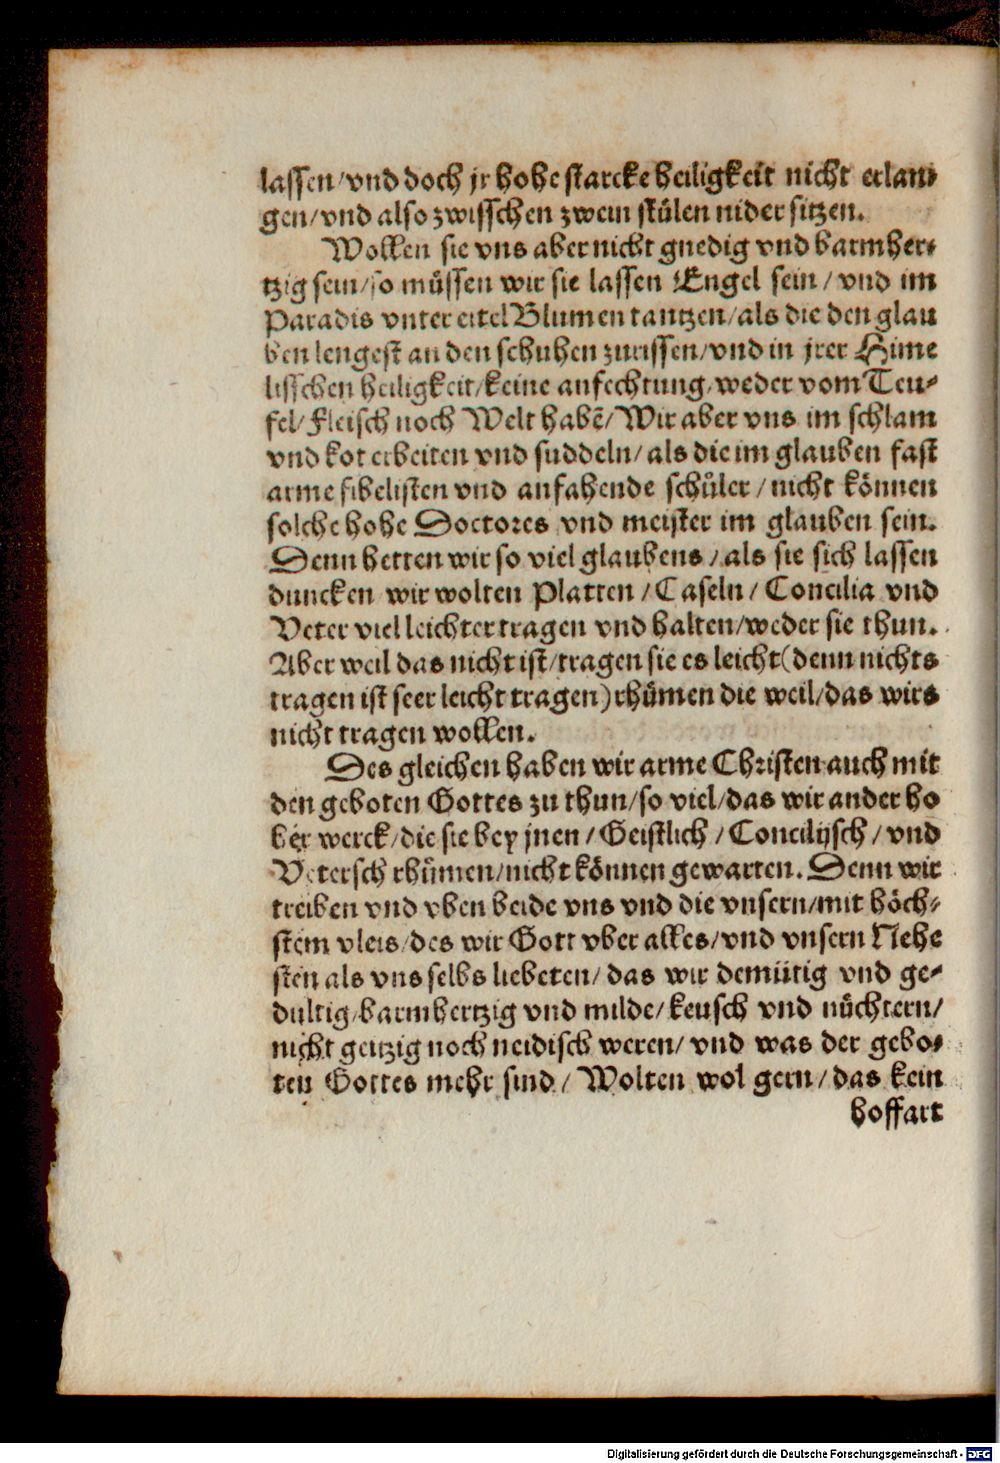 lassen/vnd doch jr hohe starcke heiligkeit nicht erlan-
gen/vnd also zwisschen zwein stülen nider sitzen.
Wollen sie vns aber nicht gnedig vnd barmher-
tzig sein/so müssen wir sie lassen Engel sein/vnd im
Paradis vnter eitel Blumen tantzen/als die den glau
ben lengest an den schuhen zurissen/vnd in jrer Hime
lisschen heiligkeit/keine anfechtung/weder vom Teu-
fel/Fleisch noch Welt habē/Wir aber vns im schlam
vnd kot erbeiten vnd suddeln/als die im glauben fast
arme fibelisten vnd anfahende schüler/nicht können
solche hohe Doctores vnd meister im glauben sein.
Denn hetten wir so viel glaubens/als sie sich lassen
duncken wir wolten Platten/Caseln/Concilia vnd
Veter viel leichter tragen vnd halten/weder sie thun.
Aber weil das nicht ist/tragen sie es leicht(denn nichts
tragen ist seer leicht tragen)rhümen die weil/das wirs
nicht tragen wollen.
Des gleichen haben wir arme Christen auch mit
den geboten Gottes zu thun/so viel/das wir ander ho
her werck/die sie bey jnen/Geistlich/Concilijsch/vnd
Vetersch rhümen/nicht können gewarten. Denn wir
treiben vnd vben beide vns vnd die vnsern/mit höch-
stem vleis/des wir Gott vber alles/vnd vnsern Nehe
sten als vns selbs liebeten/das wir demütig vnd ge-
dultig/barmhertzig vnd milde/keusch vnd nüchtern/
nicht geitzig noch neidisch weren/vnd was der gebo-
ten Gottes mehr sind/Wolten wol gern/das kein
hoffart
Digitalisierung gefördert durch die Deutsche Forschungsgemeinschaft - DFG